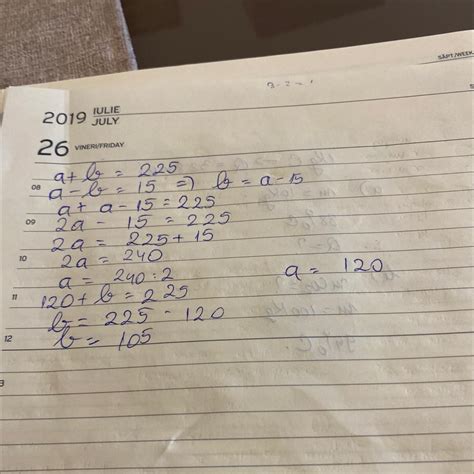 SĂPT./WEEK
2019 IULIE JULY
26 VINERI/FRIDAY
a + b = 225
08 a - b = 15 => b = a - 15
a + a - 15 = 225
09 2a - 15 = 225
2a = 225 + 15
10 2a = 240
a = 240 : 2 a = 120
11 120 + b = 225
b = 225 - 120
12 b = 105